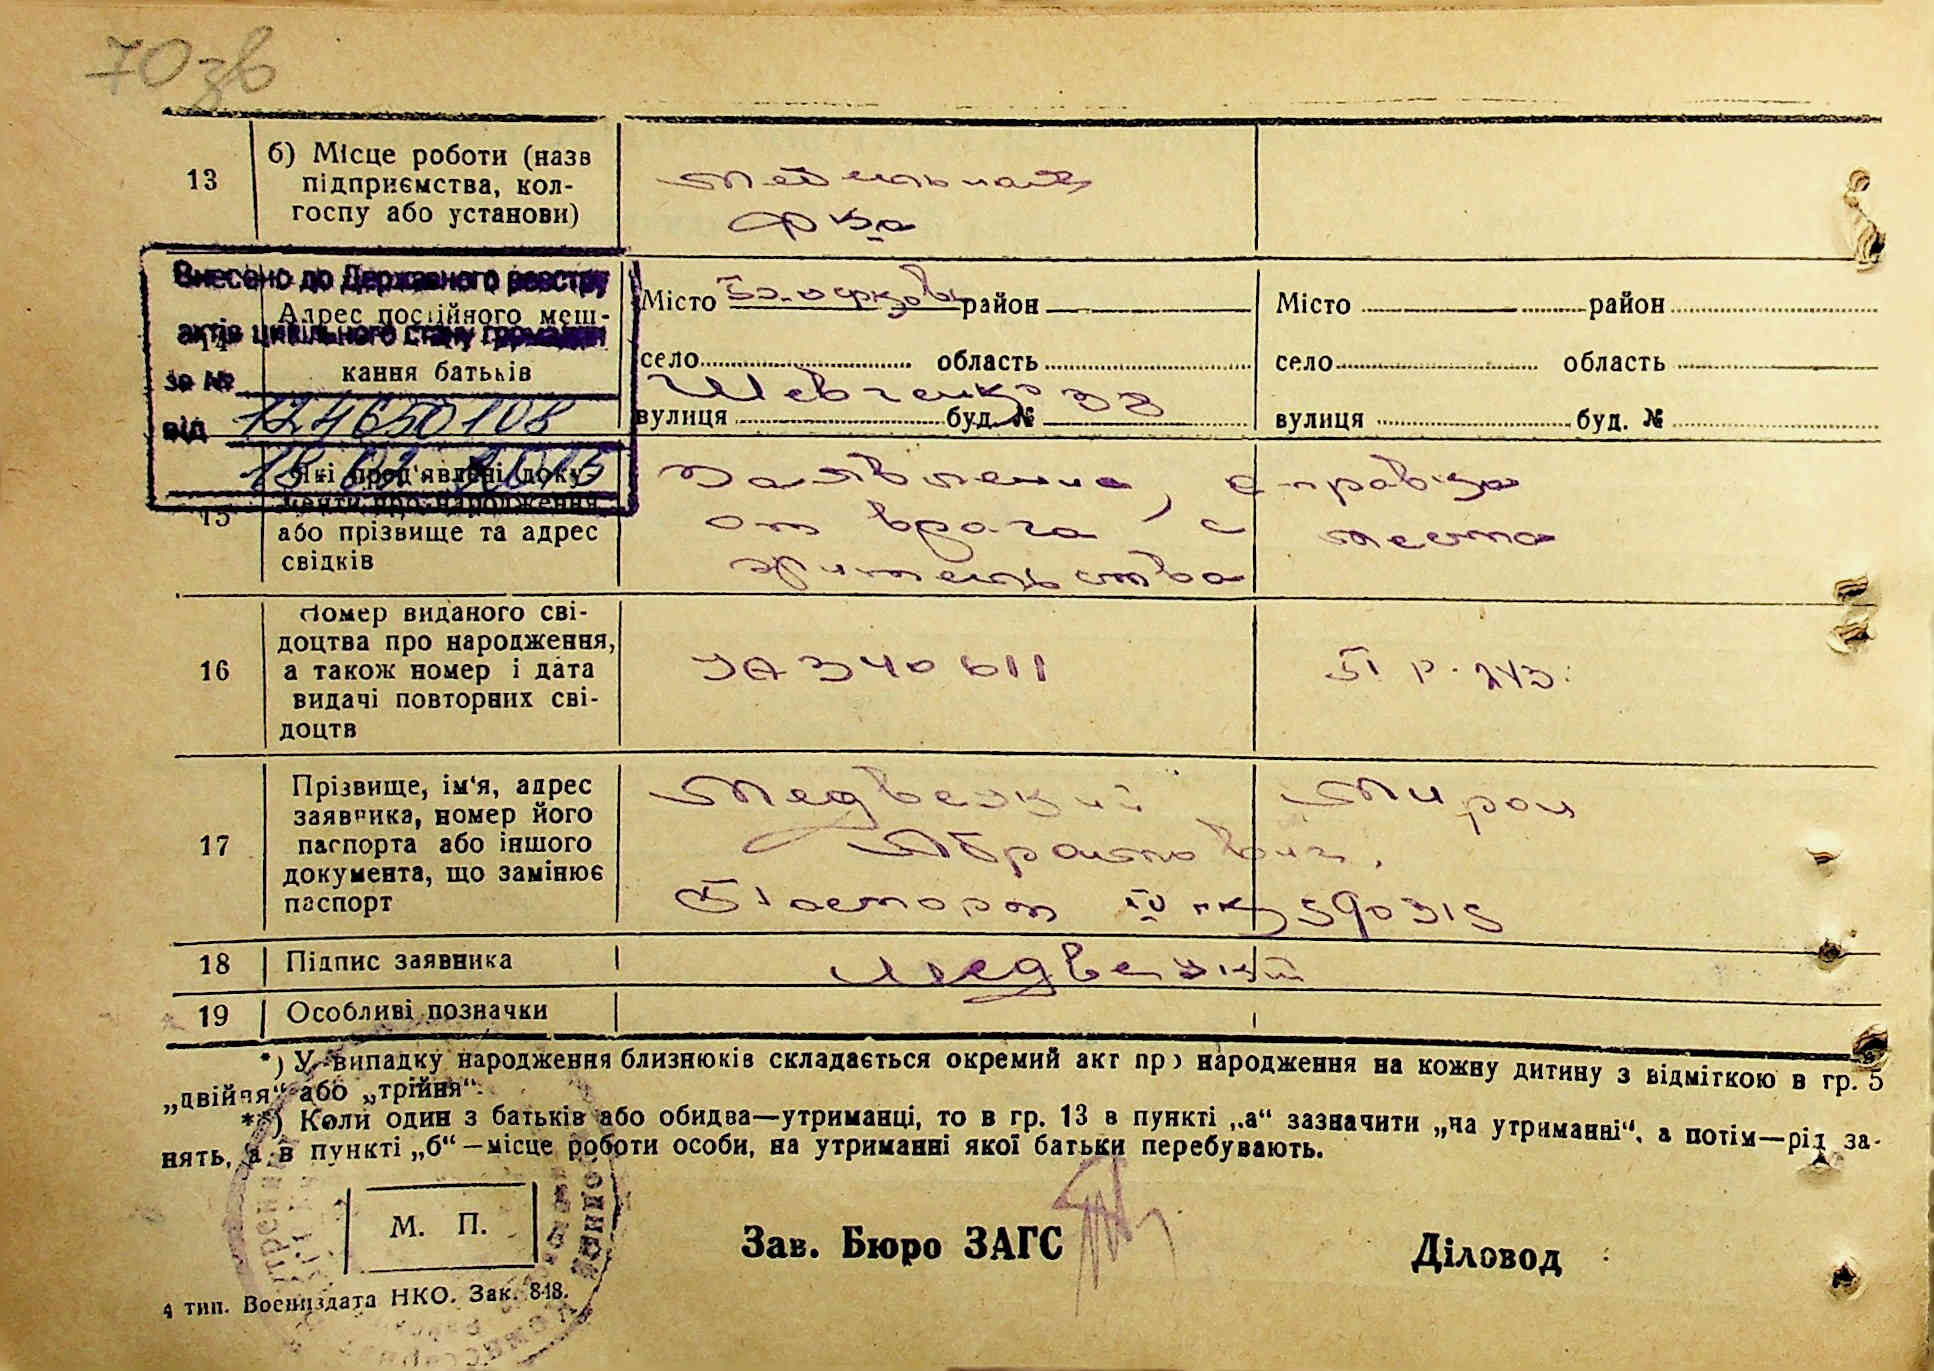 70 зв
13
б) Місце роботи (назв
підприємства, кол-
госпу або установи)
Мебельная
ф-ка
Внесено до Державного реєстру
актів цивільного стану громадян
за №
124650108
від
14
Адрес постійного меш-
кання батьків
Місто Б-Церковь район
село область
Шевченко 33
вулиця буд. №
Місто район
село область
вулиця буд. №
15
Які пред'явлені доку-
менти про народження
або прізвище та адрес
свідків
Заявление, справка
от врача, с места
жительства
16
Номер виданого сві-
доцтва про народження,
а також номер і дата
видачі повторних сві-
доцтв
УА 340611
17
Прізвище, ім'я, адрес
заявника, номер його
паспорта або іншого
документа, що замінює
паспорт
Мирон
Абрамович.
Паспорт IV 590315
18
Підпис заявника
19
Особливі позначки
*) У випадку народження близнюків складається окремий акт про народження на кожну дитину з відміткою в гр. 5
„двійня“ або „трійня“.
**) Коли один з батьків або обидва—утриманці, то в гр. 13 в пункті „а“ зазначити „на утриманні“, а потім—рід за-
нять, а в пункті „б“—місце роботи особи, на утриманні якої батьки перебувають.
М. П.
Зав. Бюро ЗАГС
Діловод
4 тип. Воениздата НКО. Зак. 848.